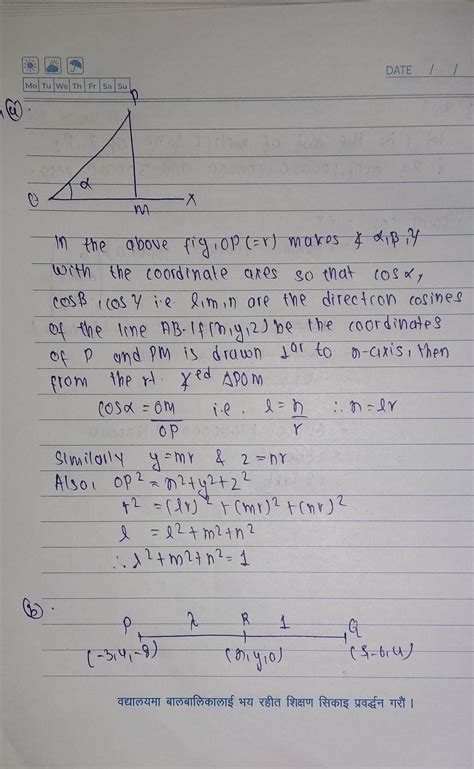 DATE / /
Mo Tu We Th Fr Sa Su
(a).
P
O α M X
In the above fig, OP (=r) makes ∡ α, β, γ
with the coordinate axes so that cos α,
cos β, cos γ i.e. l, m, n are the direction cosines
of the line AB. If (x, y, z) be the coordinates
of P and PM is drawn ⊥ar to x-axis, then
from the rt. ∡ed ΔPOM
cos α = OM/OP i.e. l = x/r ∴ x = lr
Similarly y = mr & z = nr
Also, OP² = x² + y² + z²
r² = (lr)² + (mr)² + (nr)²
1 = l² + m² + n²
∴ l² + m² + n² = 1
(b).
P λ R 1 Q
(-3, 4, -8) (x, y, 0) (5, -6, 4)
वद्यालयमा बालबालिकालाई भय रहीत शिक्षण सिकाइ प्रवर्द्धन गरौं ।